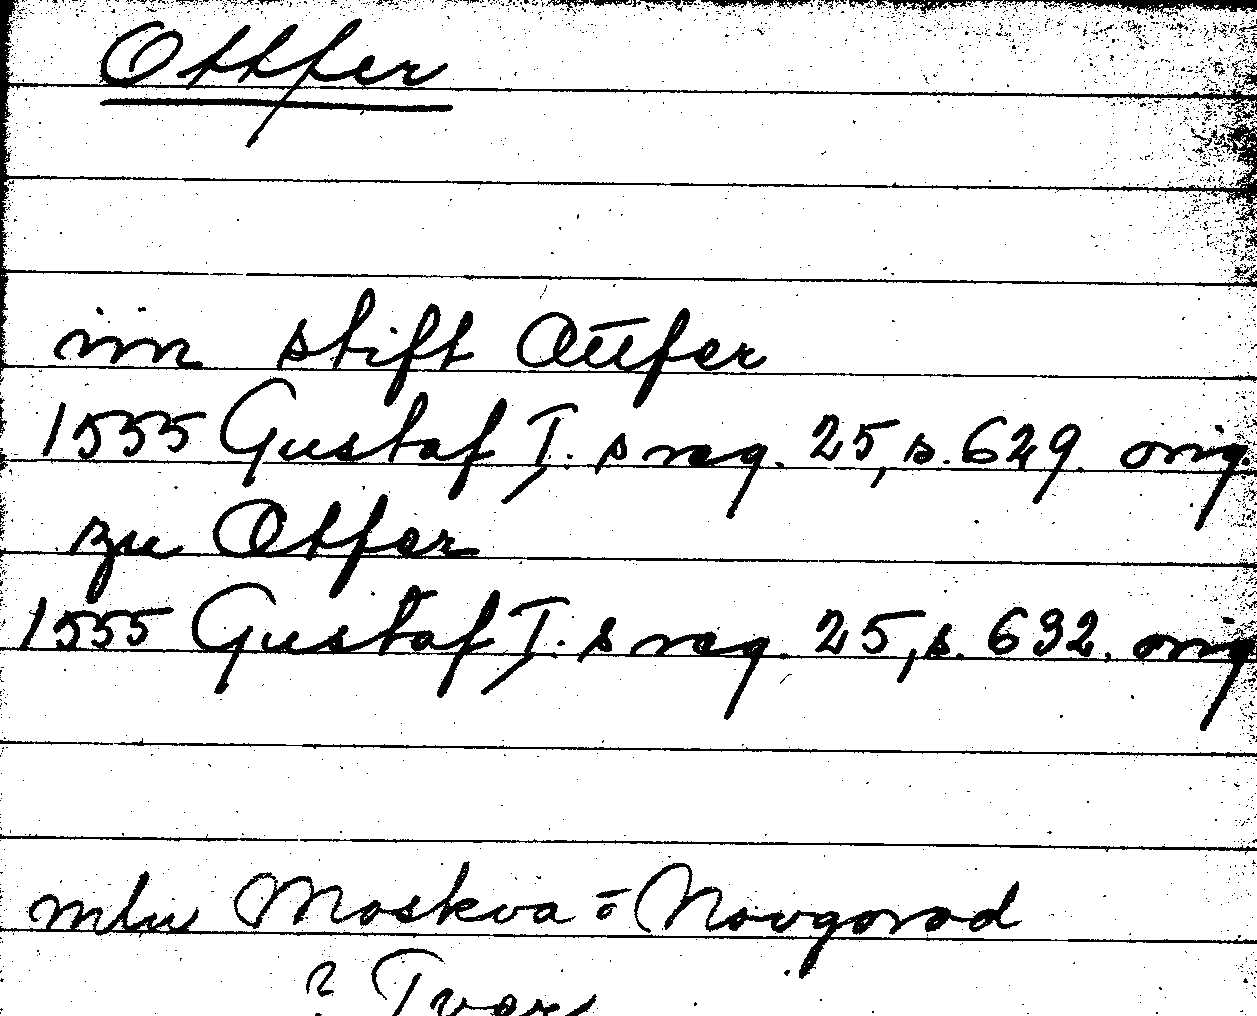 Ottfer
im stift Ottfer
1555 Gustaf I:s reg. 25, s. 629. orig.
zu Otfer
1555 Gustaf I:s reg. 25, s. 632. orig
mlu Moskva o Novgorod
? Tver